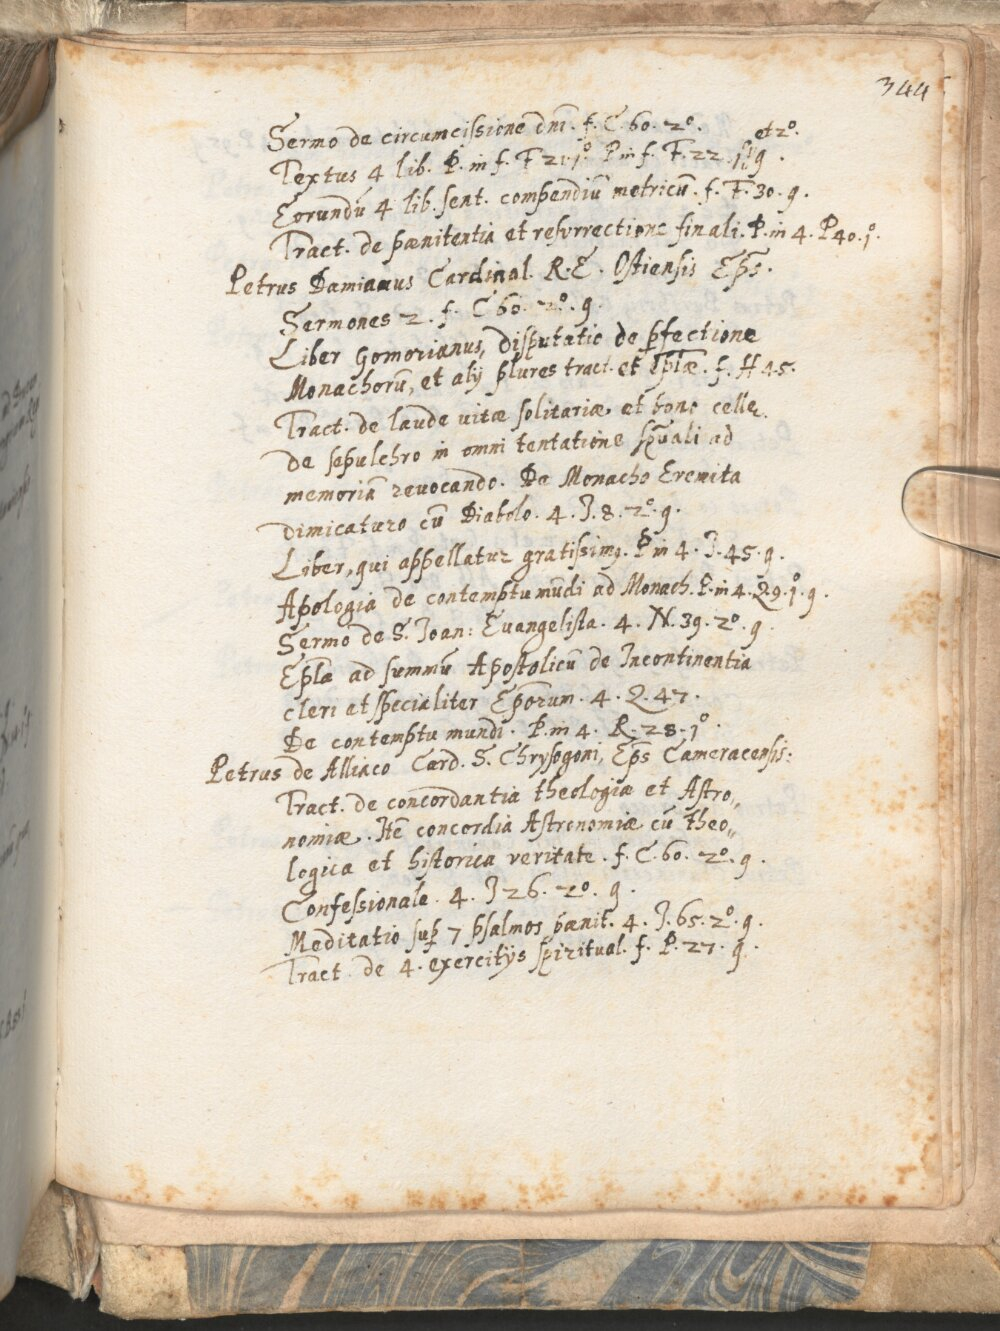 344
Sermo de circumcissione dni. f. C 60. 2º.
et 2º.
Textus 4 lib. P. in f. F 21. 1º P in f. F. 22. 1º g.
Eorundū 4 lib. sent. compendiū metricū. f. F. 30. g.
Tract. de pænitentia et resurrectione finali. P. in 4. P 40. 1º.
Petrus Damianus Cardinal. R. E. Ostiensis Eps.
Sermones 2. f. C 60. 2º. g.
Liber Gomorianus, disputatio de pfectione
Monachorū, et alij plures tract. et Eplæ. f. H 45.
Tract. de laude vitæ solitariæ et bono celle.
de sepulchro in omni tentatione spuali ad
memoriā revocando. De Monacho Eremita
dimicaturo cū Diabolo. 4. J. 8. 2º. g.
Liber, qui appellatur gratissimg. P in 4. J. 45. g.
Apologia de contemptu mūdi ad Monach. P. in 4. Q 9. 1º. g.
Sermo de S. Joan: Evangelista. 4. N. 39. 2º. g.
Epla ad summū Apostolicū de Incontinentia
cleri et specialiter Eporum. 4. Q. 47.
De contemptu mundi. P. in 4. R. 28. 1º.
Petrus de Alliaco Card. S. Chrysogoni, Eps Cameracensis:
Tract. de concordantia theologiæ et Astro„
nomiæ. Itē concordia Astronomiæ cū theo„
logica et historica veritate. f. C. 60. 2º. g.
Confessionale. 4. J 26. 2º. g.
Meditatio sup 7 psalmos pænit. 4. J. 65. 2º. g.
Tract. de 4. exercitijs spiritual. f. P. 27. g.